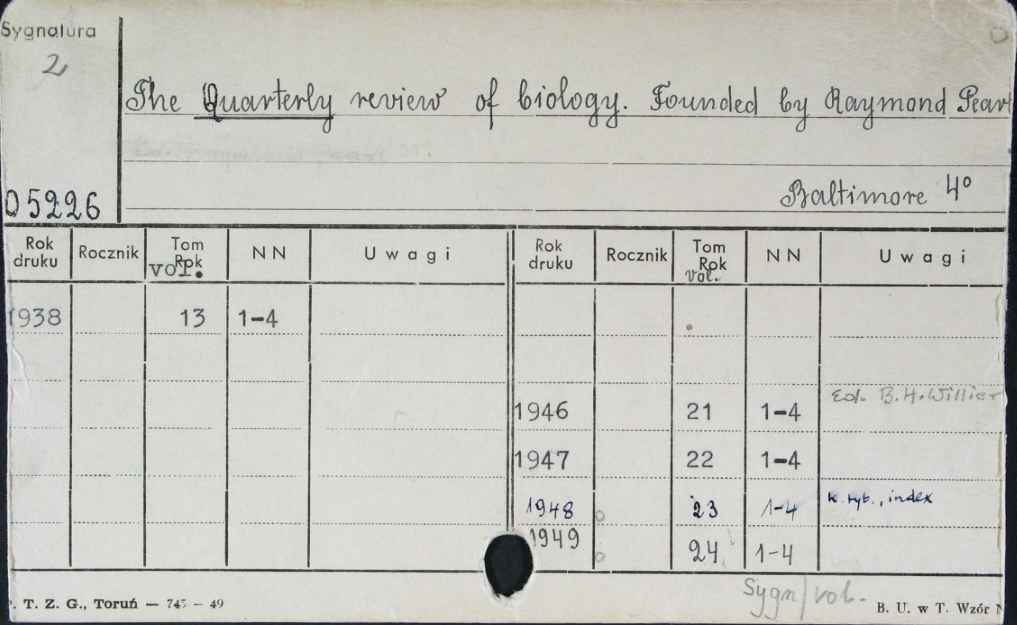 Sygnatura
2
The Quarterly review of biology. Founded by Raymond Pearl
Baltimore 4°
05226
Rok druku Rocznik Tom Rok vol. NN Uwagi Rok druku Rocznik Tom Rok vol. NN Uwagi
1938 13 1-4
1946 21 1-4 Ed. B.H. Willier
1947 22 1-4
1948 23 1-4 k. tyt., index
1949 24 1-4
Sygn/vol.
T. Z. G., Toruń — 745 — 49
B. U. w T. Wzór